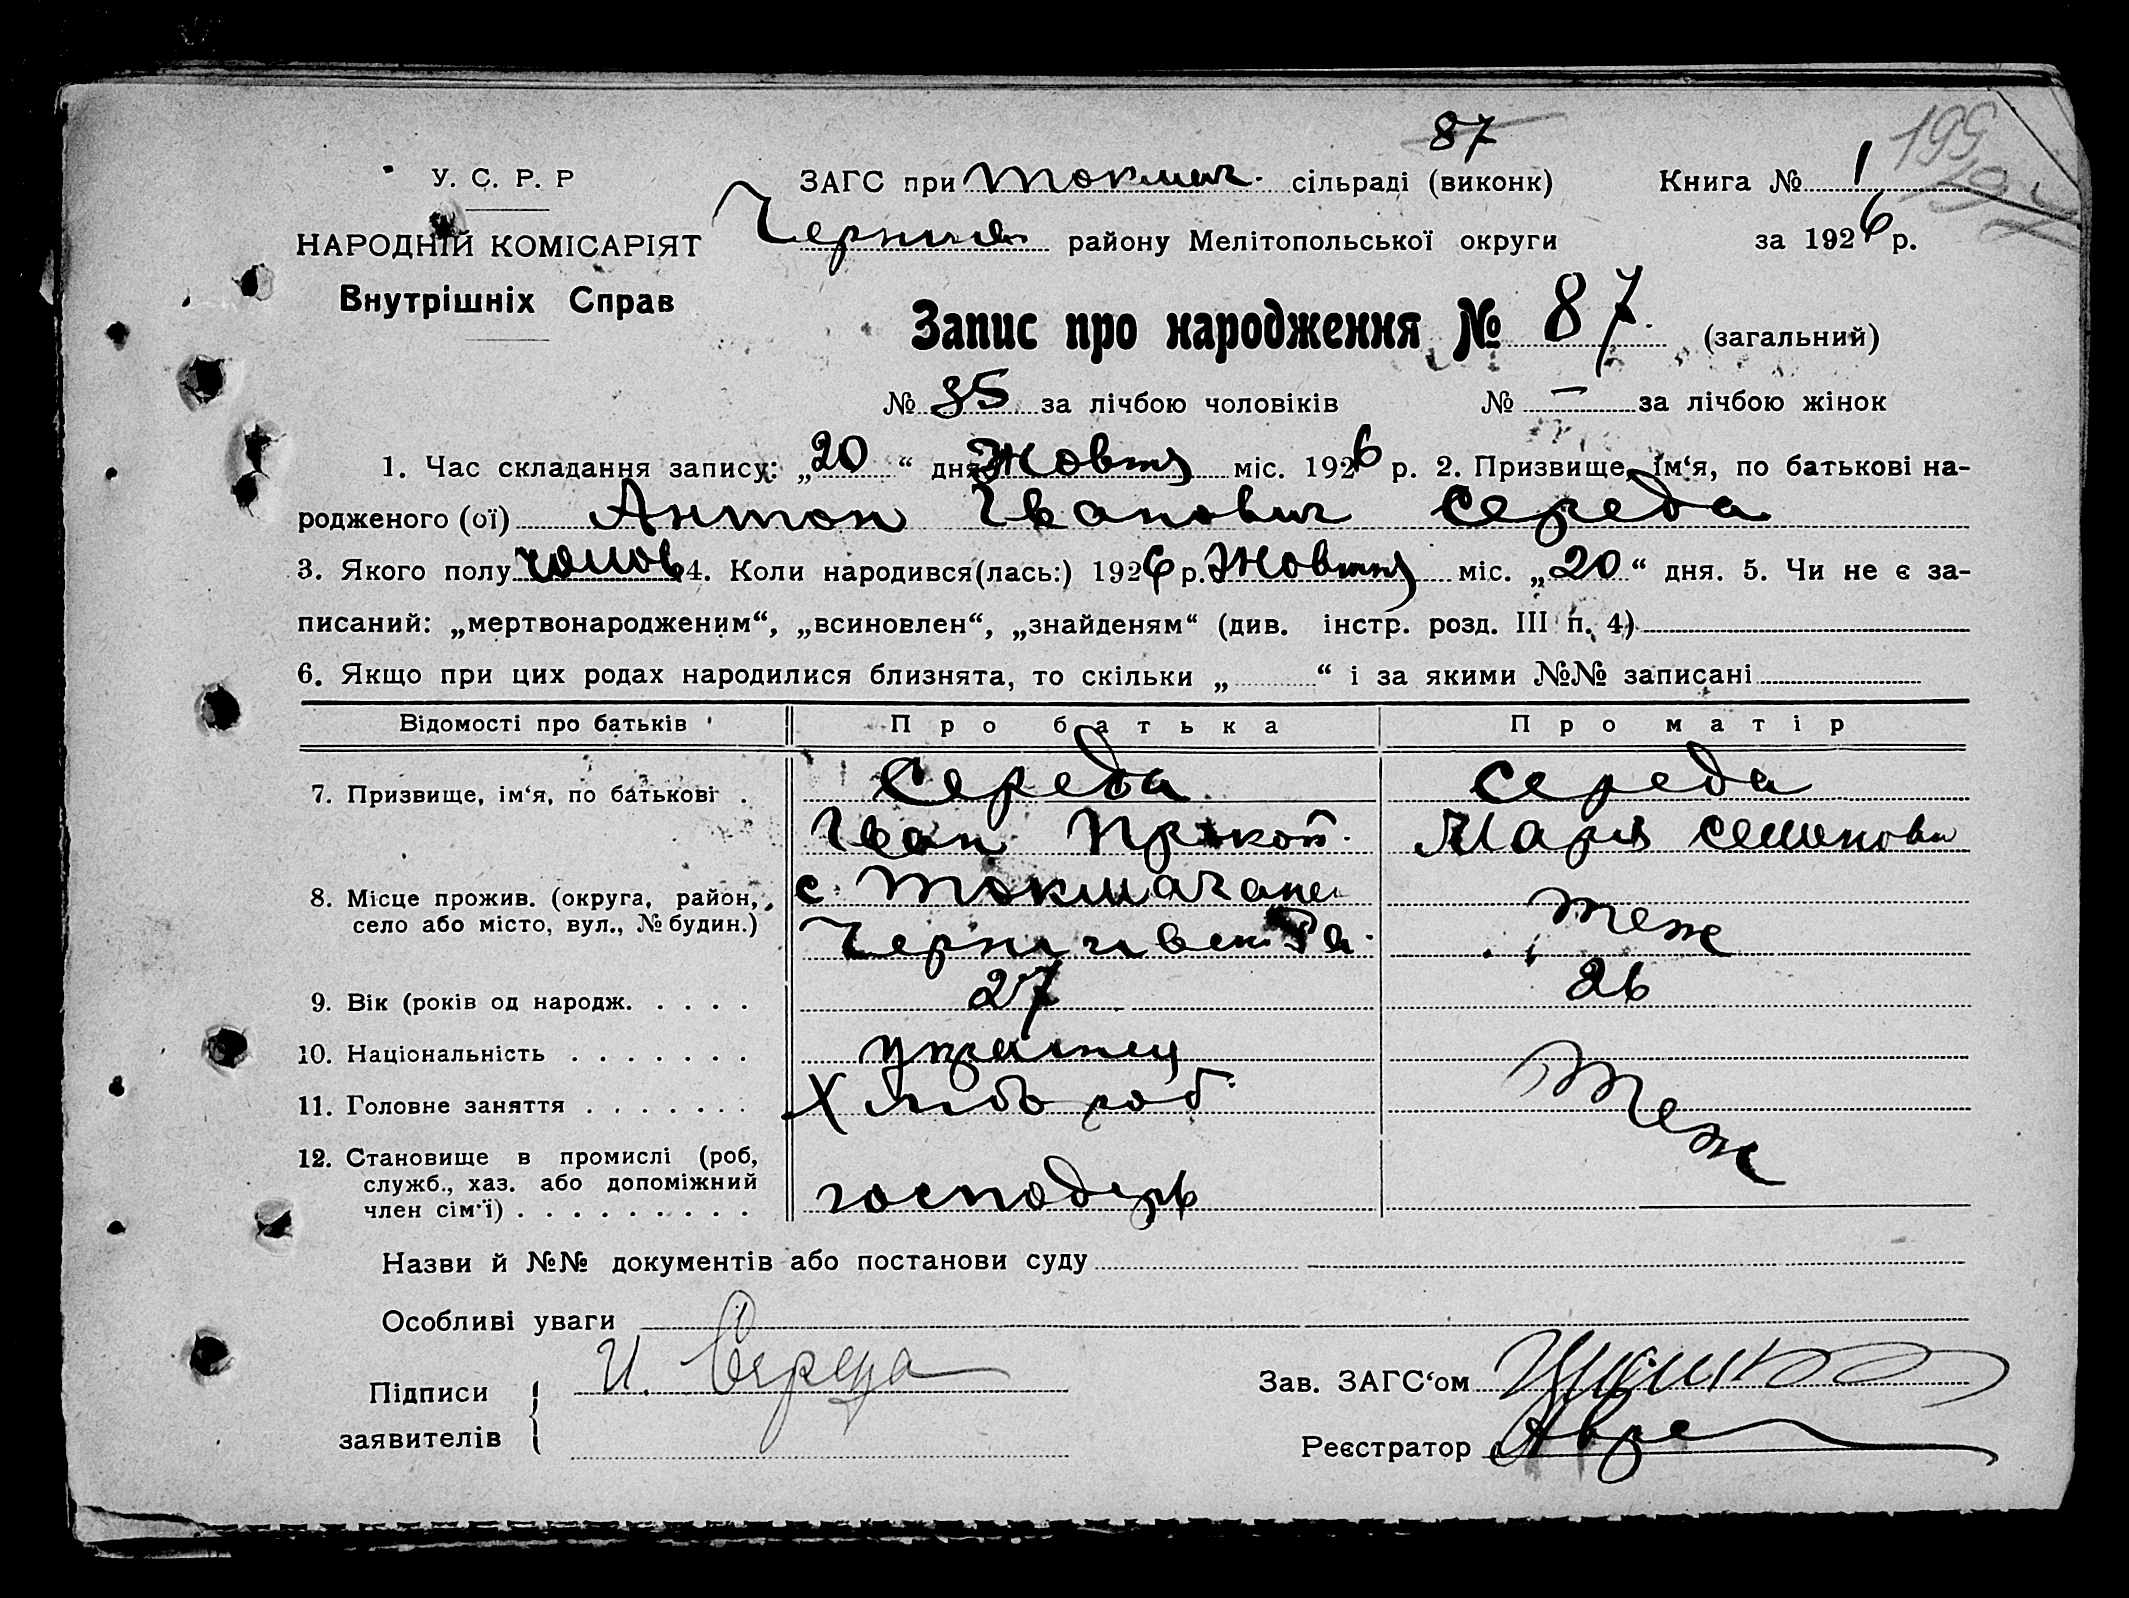 87
195
У. С. Р. Р
ЗАГС при Токмач. сільраді (виконк)
Книга № 1
НАРОДНІЙ КОМІСАРІЯТ
Черниг району Мелітопольської округи
за 1926 р.
Внутрішніх Справ
Запис про народження № 87 (загальний)
№ 35 за лічбою чоловіків № — за лічбою жінок
1. Час складання запису: „20“ дня Жовтя міс. 1926 р. 2. Призвище, ім‘я, по батькові на-
родженого (ої) Антон Іванович Середа
3. Якого полу чолов 4. Коли народився(лась:) 1926 р. Жовтня міс. „20“ дня. 5. Чи не є за-
писаний: „мертвонародженим“, „всиновлен“, „знайденям“ (див. інстр. розд. III п. 4)
6. Якщо при цих родах народилися близнята, то скільки „ “ і за якими №№ записані
Відомості про батьків Про батька Про матір
7. Призвище, ім‘я, по батькові . Середа Середа
Іван Прокоп. Мария Семеновн
8. Місце прожив. (округа, район, с. Токмачани
село або місто, вул., № будин.) Чернигвськ Ра. теж
9. Вік (років од народж. . . . . 27 26
10. Національність . . . . . . . украінец теж
11. Головне заняття . . . . . . . Хлібороб
12. Становище в промислі (роб,
служб., хаз. або допоміжний
член сім‘ї) . . . . . . . . . господарь
Назви й №№ документів або постанови суду
Особливі уваги
Підписи И. Середа
заявителів
Зав. ЗАГС‘ом
Реєстратор